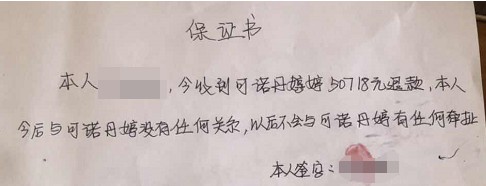 保证书
本人，今收到可诺丹婷婷50718元退款，本人
今后与可诺丹婷没有任何关系，以后不会与可诺丹婷有任何牵扯
本人签字：